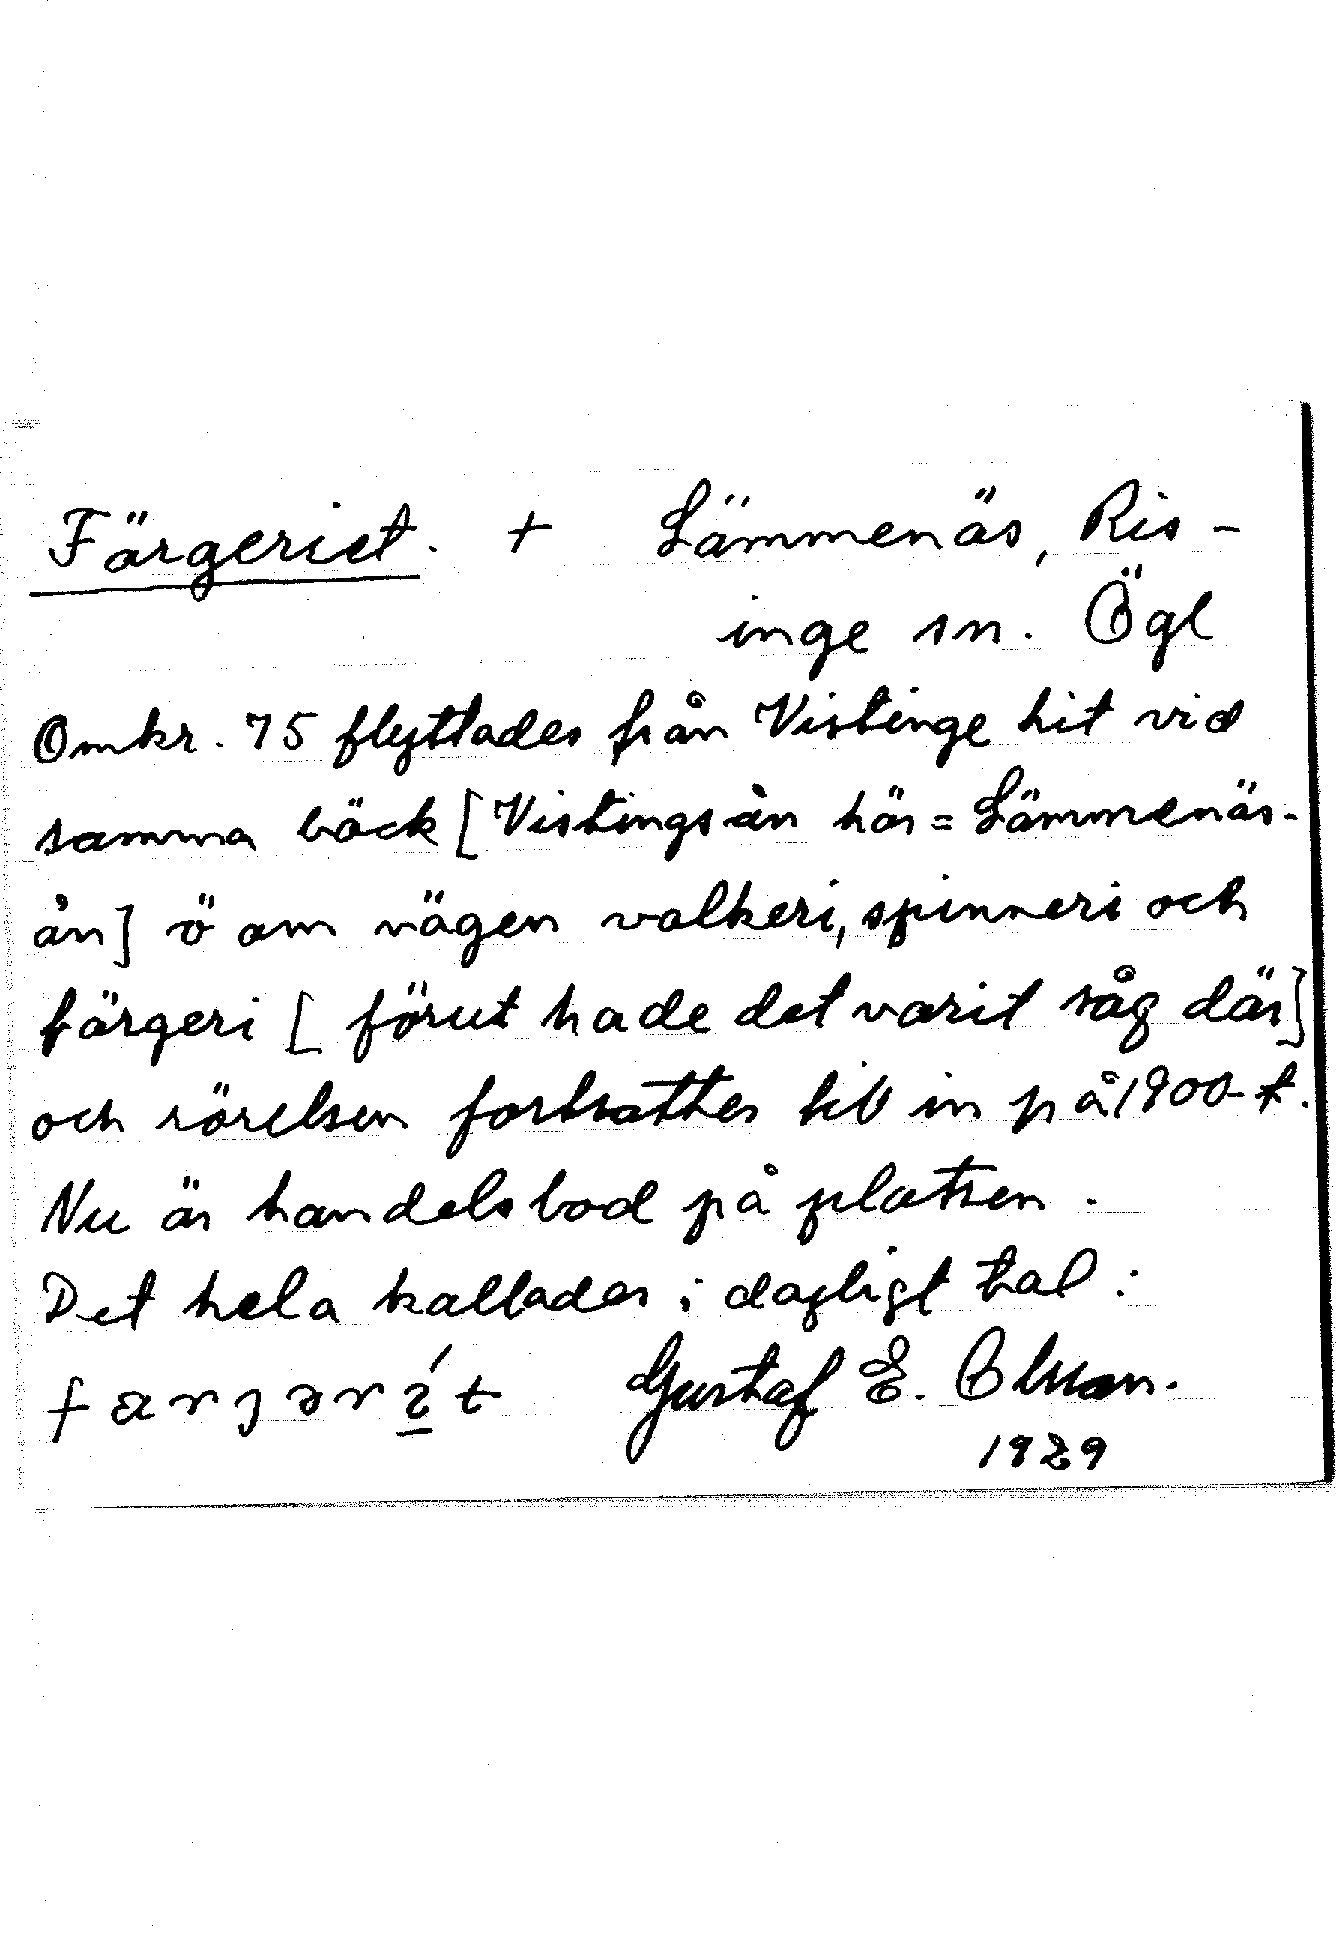 Färgeriet. + Lämmenäs, Ris-
inge sn. Ögl
Omkr. 75 flyttades från Vistinge hit vid
samma bäck [Vistingsån här = Lämmenäs-
ån] ö om vägen valkeri, spinneri och
färgeri [förut hade det varit såg där]
och rörelsen fortsattes till in på 1900-t.
Nu är handelsbod på platsen.
Det hela kallades i dagligt tal:
Gustaf E. Olsson.
1929